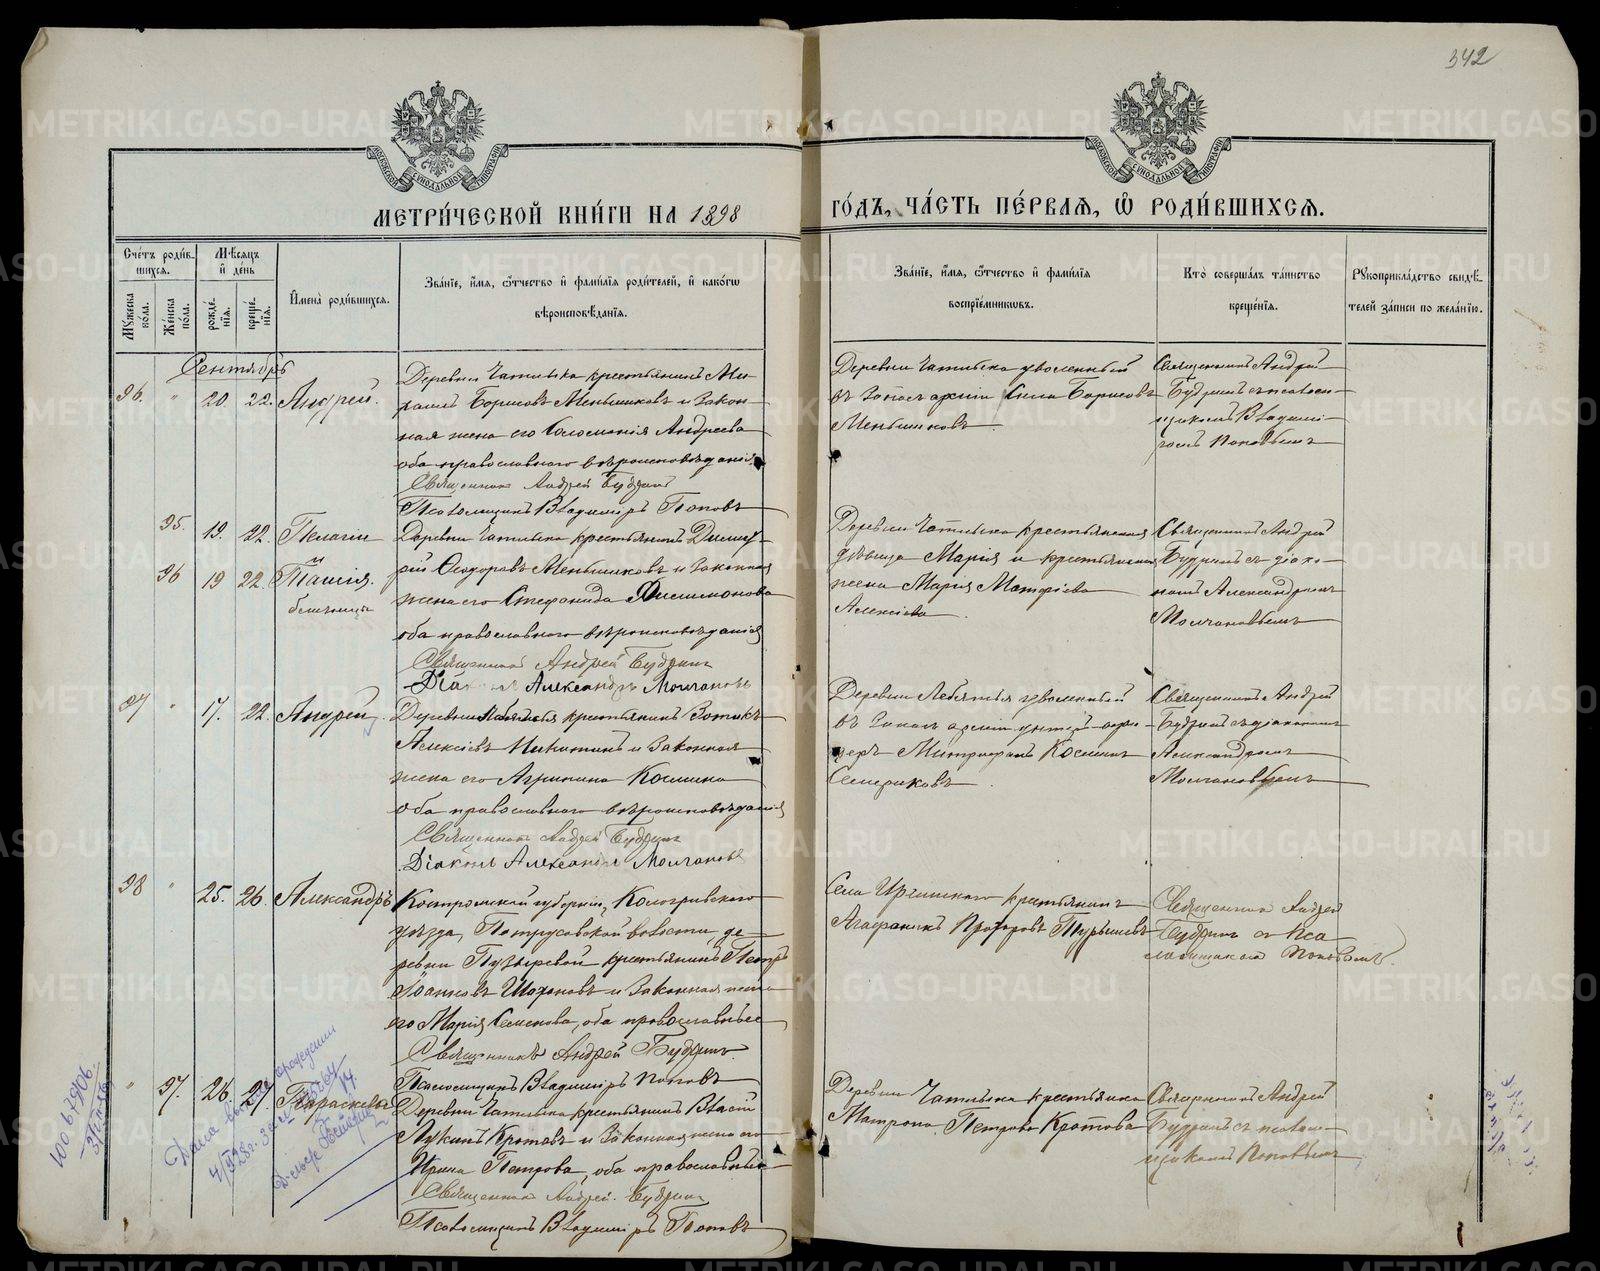 342
МОСКОВСКОЙ СѴНОДАЛЬНОЙ ТИПОГРАФІИ
МОСКОВСКОЙ СѴНОДАЛЬНОЙ ТИПОГРАФІИ
МЕТРИ́ЧЕСКОЙ КНИ́ГИ НА 1898
ГО́ДЪ, ЧА́СТЬ ПЕ́РВАѦ, Ѡ҆ РОДИ́ВШИХСѦ.
Сче́тъ роди́в-
шихсѧ.
Мѣ́сѧцъ
и҆ де́нь
Мꙋ́жеска по́ла.
Же́нска по́ла.
рожде́нїѧ.
креще́нїѧ.
И҆мена̀ роди́вшихсѧ.
Зва́нїе, и҆́мѧ, ѻ҆́тчество и҆ фами́лїѧ роди́телей, и҆ како́гѡ
вѣроисповѣ́данїѧ.
Зва́нїе, и҆́мѧ, ѻ҆́тчество и҆ фами́лїѧ
воспрїе́мниковъ.
Кто̀ соверша́лъ та́инство
креще́нїѧ.
Рꙋкоприкла́дство свидѣ́-
телей за́писи по жела́нїю.
Сентябрь
26. " 20. 22. Андрей.
Деревни Чатлыка крестьянинъ Ми-
Борисовъ Меньшиковъ и закон-
ная жена его Соломонія Андреева
оба православнаго вѣроисповѣданія
Священникъ Андрей Будринъ
Псаломщикъ Владиміръ Поповъ
Деревни Чатлыка уволенный
въ запасъ арміи Борисовъ
Меньшиковъ
Священникъ Андрей
Будринъ съ псалом-
щикомъ Владимі-
ромъ Поповымъ
25. 19. 22. Пелагія
26 19 22. Таисія.
близницы
Деревни Чатлыка крестьянинъ Димит-
рій Ѳедоровъ Меньшиковъ и законная
жена его Стефанида Филимонова
оба православнаго вѣроисповѣданія
Священникъ Андрей Будринъ
Діаконъ Александръ Молчановъ
Деревни Чатлыка крестьянская
дѣвица Марія и крестьянская
жена Марія Матфіева
Алексіева
Священникъ Андрей
Будринъ съ діако-
номъ Александромъ
Молчановымъ
27 " 17. 22. Андрей
Деревни Лебяжья крестьянинъ Зотикъ
Алексіевъ Никитинъ и законная
жена его Агрипина Космина
оба православнаго вѣроисповѣданія
Священникъ Андрей Будринъ
Діаконъ Александръ Молчановъ
Деревни Лебяжья уволенный
въ запасъ арміи унтеръ-офи-
церъ Митрофанъ Косминъ
Семериковъ
Священникъ Андрей
Будринъ съ діакономъ
Александромъ
Молчановымъ
28 " 25. 26. Александръ
Костромской губерніи, Кологривскаго
уѣзда, Потрусовской волости, де-
ревни Пузыревой крестьянинъ Петръ
Іоанновъ и законная жена
его Марія Семенова, оба православные
Священникъ Андрей Будринъ.
Псаломщикъ Владиміръ Поповъ
Села Иргинскаго крестьянинъ
Агафоникъ Прохоровъ Турышевъ
Священникъ Андрей
Будринъ съ Пса
ломщикомъ Поповымъ.
" 27. 26. 27. Параскева
Деревни Чатлыка крестьянинъ Васій
Лукинъ Кротовъ и законная жена его
Ирина Петрова, оба православные
Священникъ Андрей Будринъ
Псаломщикъ Владиміръ Поповъ
Деревни Чатлыка крестьянка
Матрона Петрова Кротова
Священникъ Андрей
Будринъ съ псалом-
щикомъ Поповымъ
METRIKI.GASO-URAL.RU